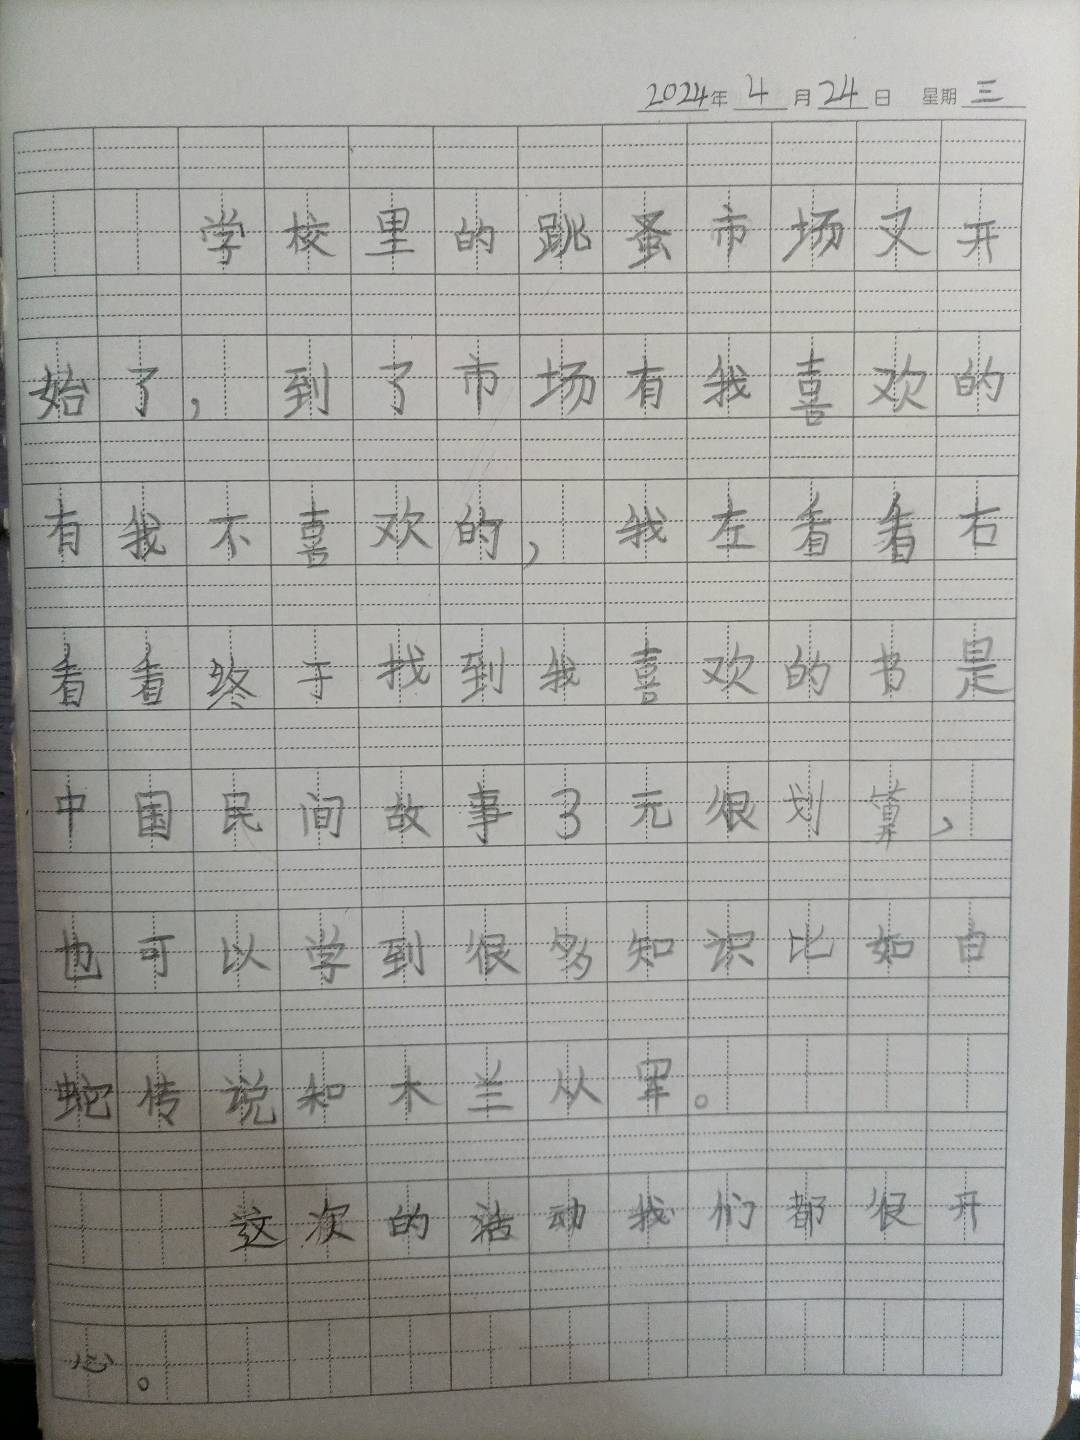 2024年4月24日 星期三
学校里的跳蚤市场又开
始了,到了市场有我喜欢的
有我不喜欢的,我左看看右
看看终于找到我喜欢的书是
中国民间故事3元很划算,
也可以学到很多知识比如白
蛇传说和木兰从军。
这次的活动我们都很开
心。